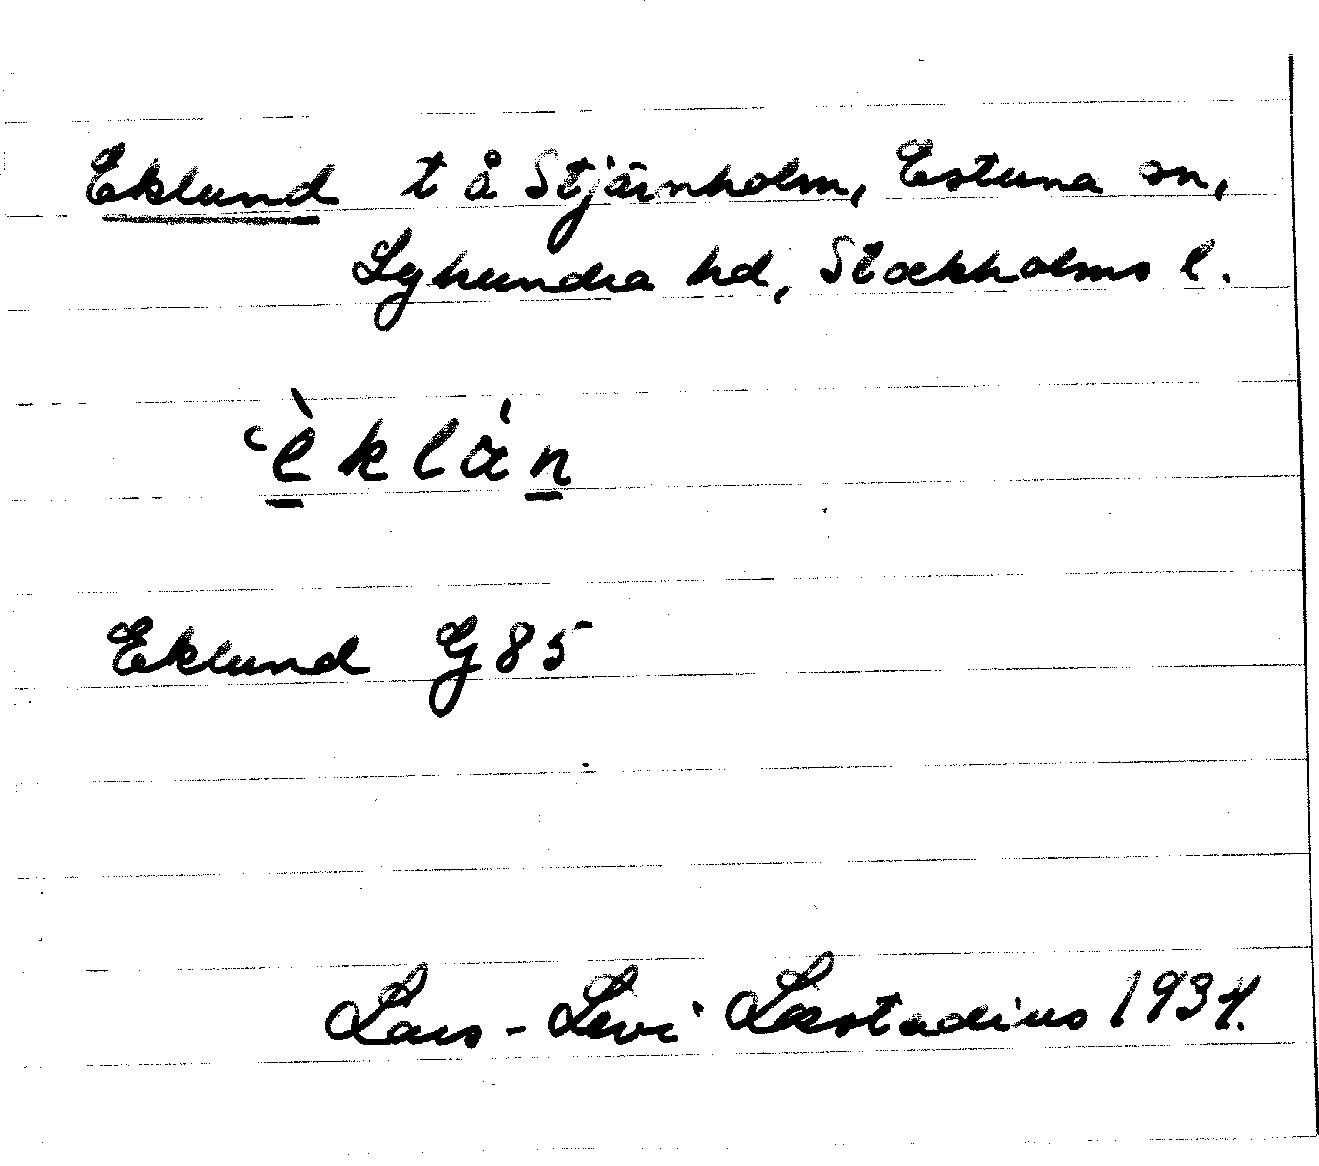 Eklund t å Stjärnholm, Estuna sn,
Lyhundra hd, Stockholms l.
èklán
Eklund G 85
Lars-Levi Læstadius 1934.